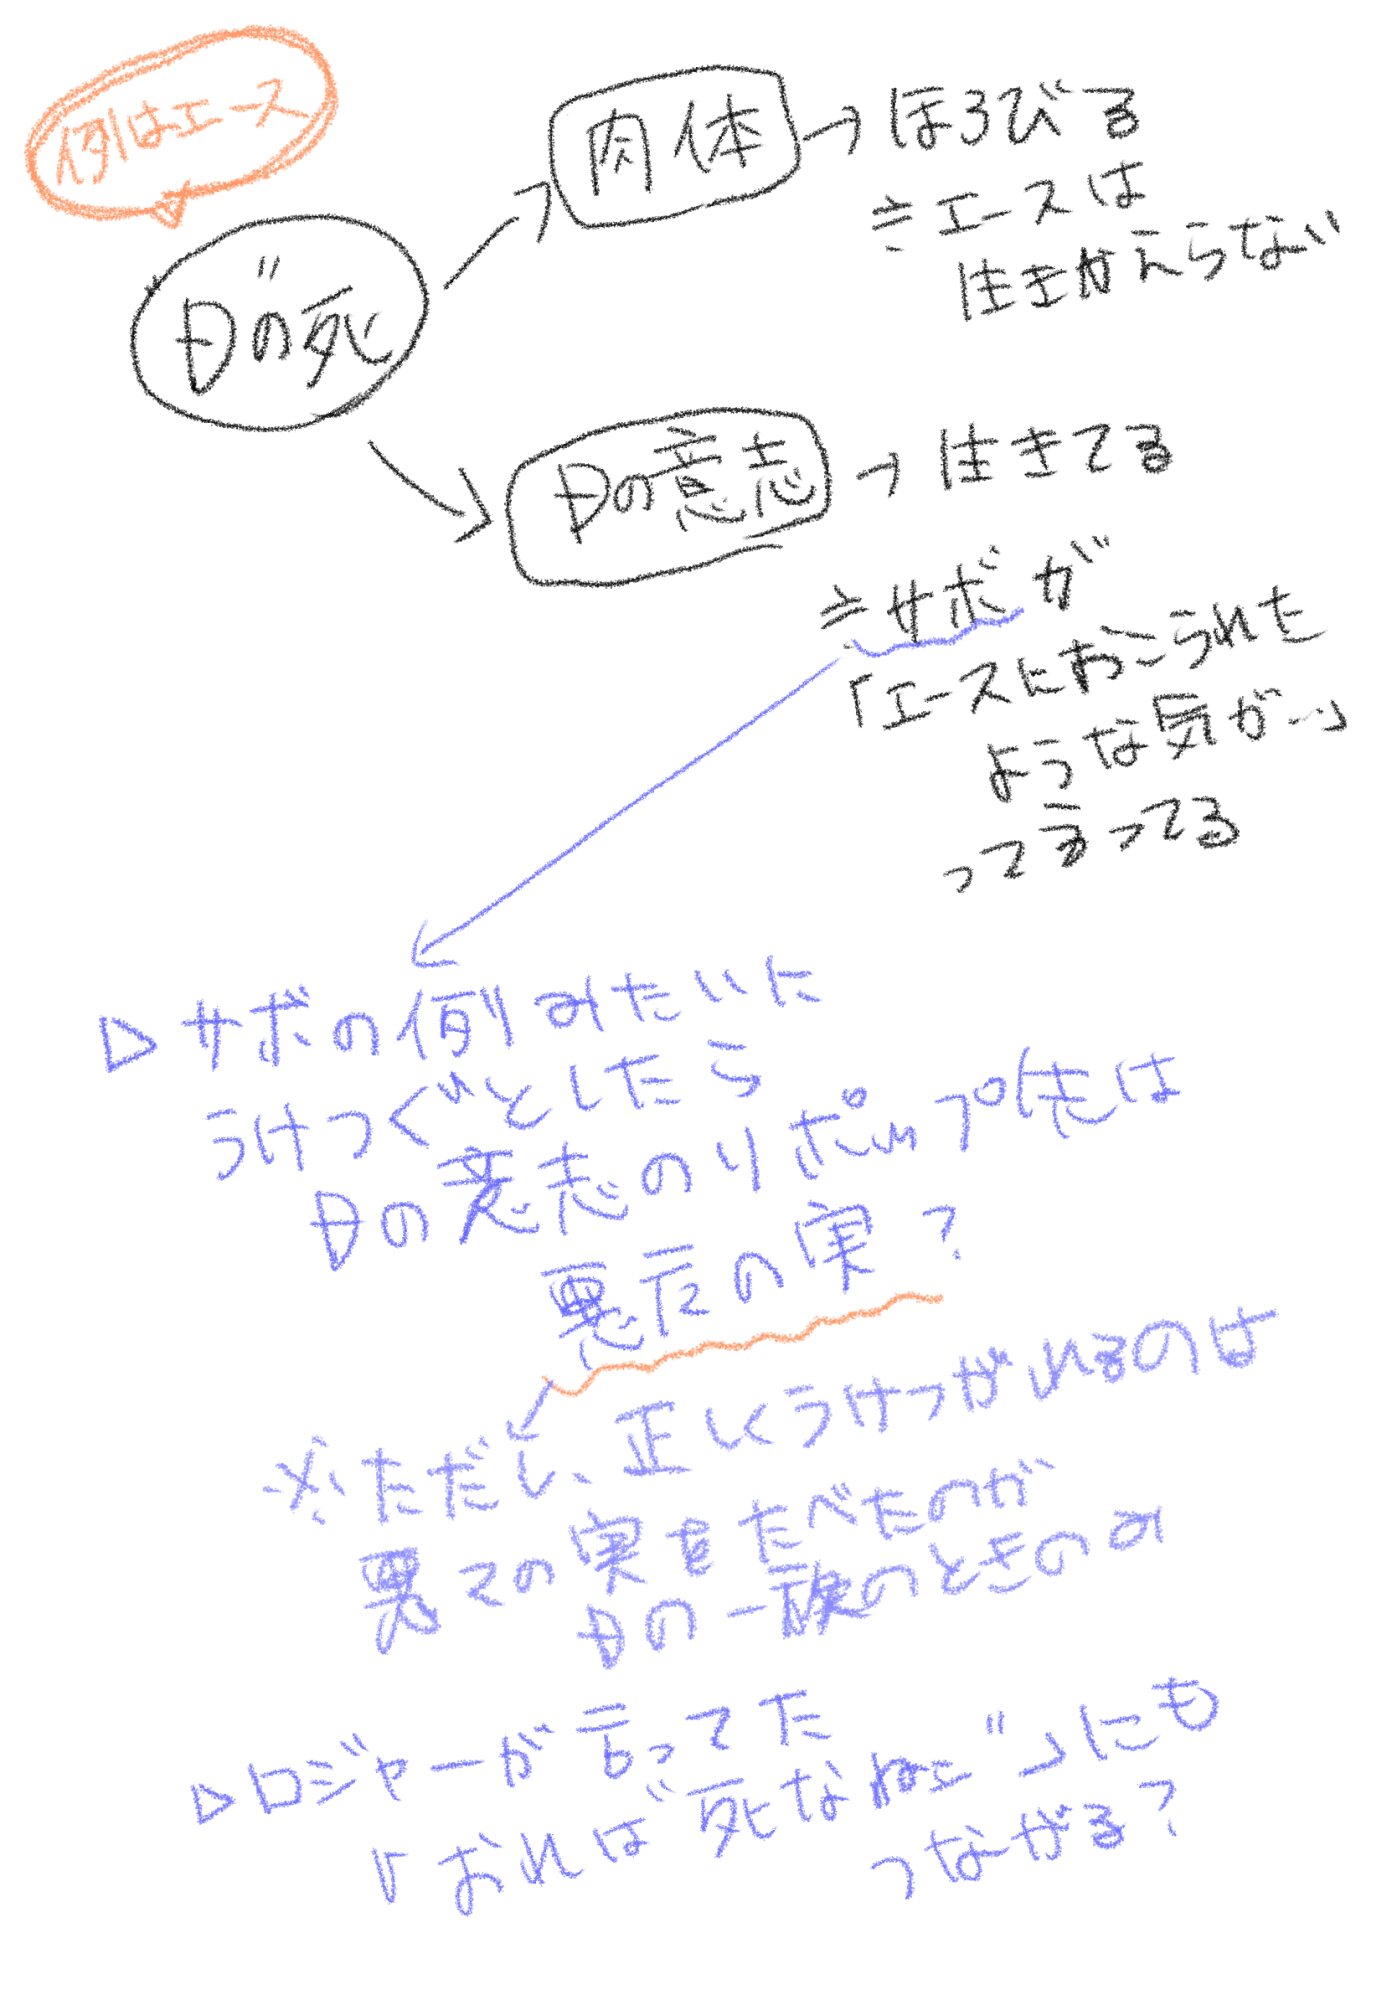 例はエース
"Dの死
肉体→ほろびる
∴エースは
生きかえらない
Dの意志→生きてる
∴サボが
「エースにおこられた
ような気が…」
って言ってる
▷サボの例みたいに
うけつぐとしたら
Dの意志のリポップ先は
悪魔の実?
※ただし、正しくうけつがれるのは
悪マの実をたべたのが
Dの一族のときのみ
▷ロジャーが言ってた
「おれは"死なねェ"」にも
つながる?